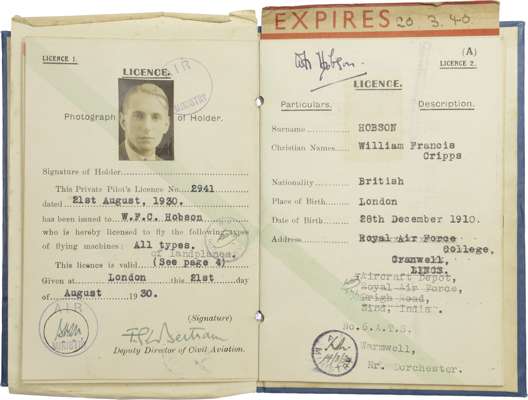 LICENCE 1.
AIR
MINISTRY
LICENCE.
Photograph of Holder.
Signature of Holder
This Private Pilot's Licence No. 2941
dated 21st August, 1930.
has been issued to W.F.C. Hobson
who is hereby licensed to fly the following types
of flying machines: All types.
of landplanes.
This licence is valid (See page 4)
Given at London this 21st day
of August 1930.
(Signature)
AIR
MINISTRY
Deputy Director of Civil Aviation.
EXPIRES 20.3.40
Hobson
(A)
LICENCE 2.
LICENCE.
Particulars. Description.
Surname HOBSON
Christian Names William Francis
Cripps
Nationality British
Place of Birth London
Date of Birth 28th December 1910.
Address Royal Air Force
College,
Cranwell,
LINCS.
Aircraft Depot,
Royal Air Force,
Drigh Road,
Sind, India.
No.6.A.T.S.
Warmwell,
Nr. Dorchester.